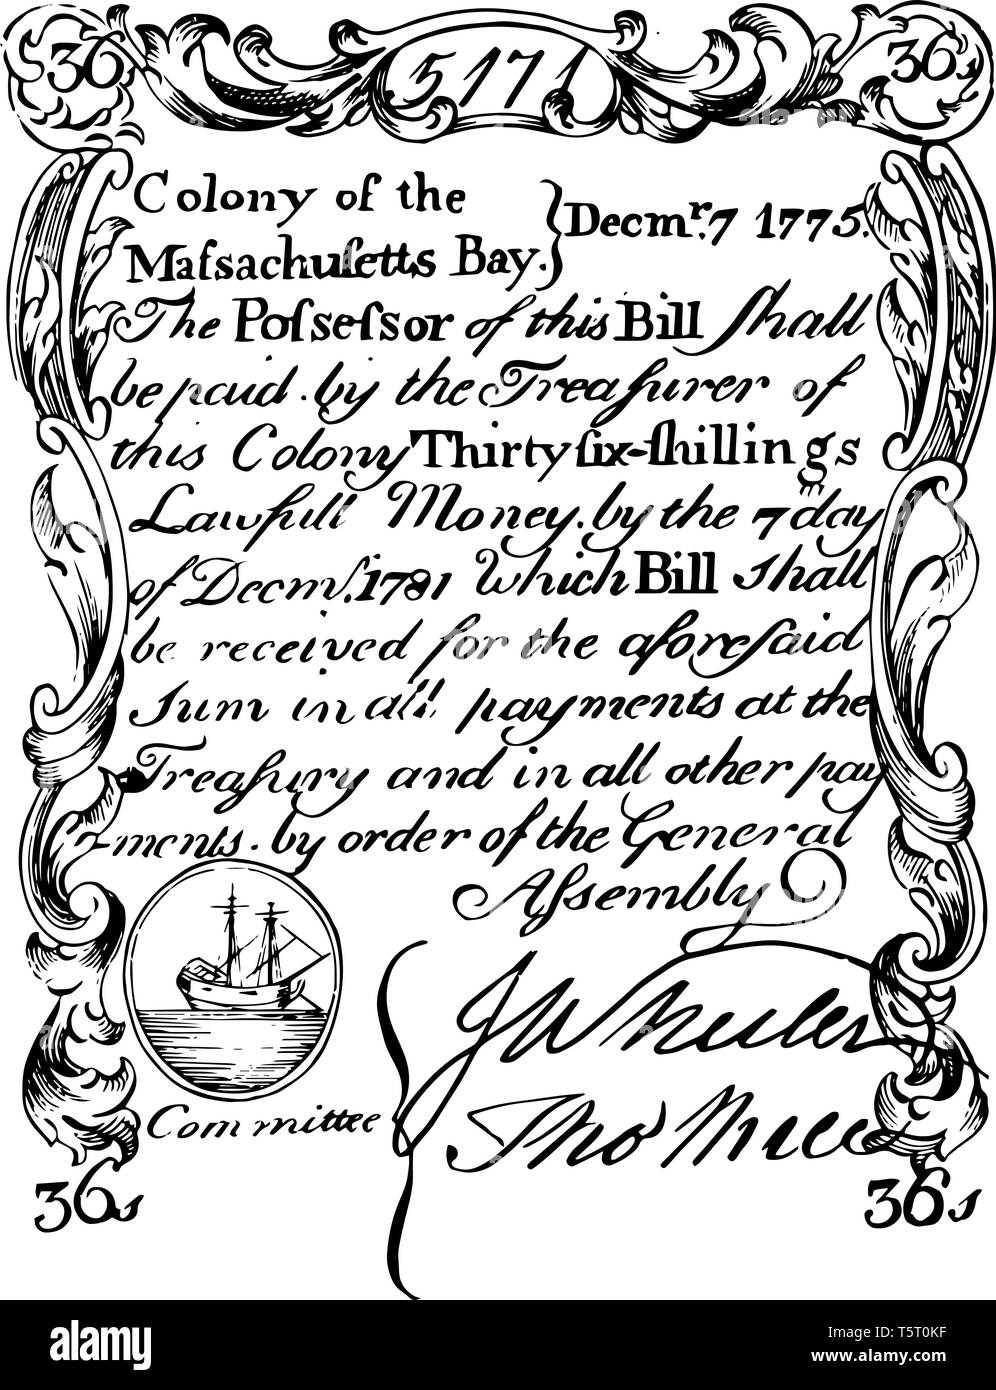 36s 5171 36s
Colony of the
Maſsachuſetts Bay. } Decmr. 7 1775.
The Poſseſsor of this Bill Shall
be paid. by the Treaſurer of
this Colony Thirty ſix-ſhillings
Lawfull Money. by the 7 day
of Decmr. 1781 Which Bill Shall
be received for the aforeſaid
Sum in all payments at the
Treaſury and in all other pay
ments. by order of the General
Aſsembly
J Wheeler
Committee {
Tho
36s 36s
alamy
Image ID: T5T0KF
www.alamy.com